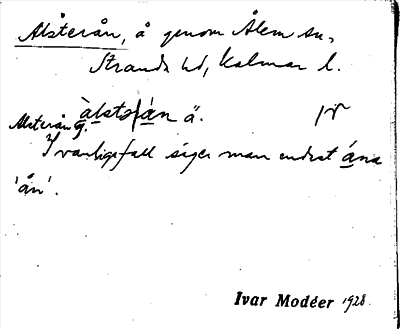 Alsterån, å genom Ålem sn,
Stranda hd, Kalmar l.
àlstərán ä.
Alsterån g.
I vanliga fall säger man endast ána
'ån'.
Ivar Modéer 1928.